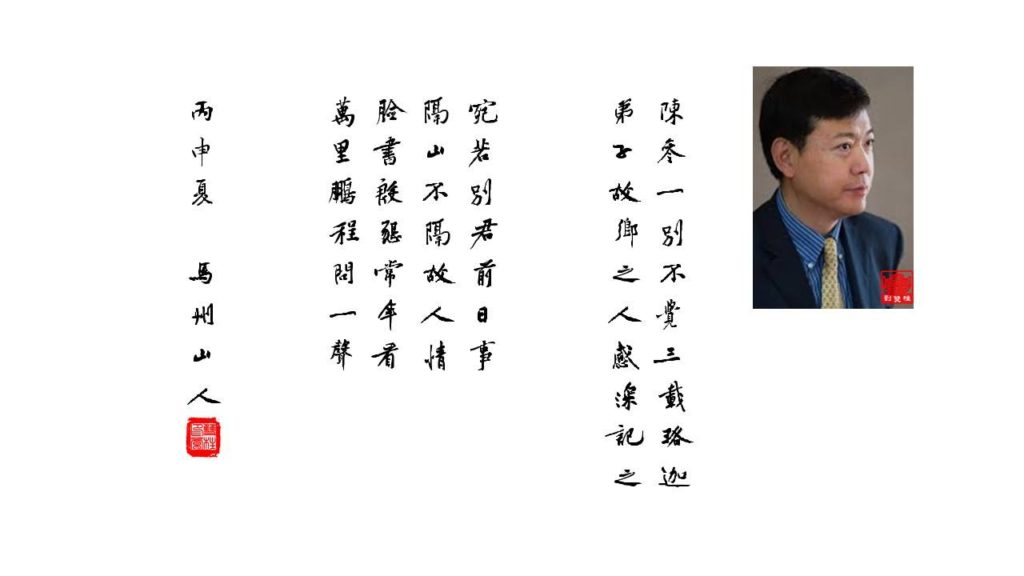 陳冬一別不覺三載珞迦
弟子故鄉之人感深記之
宛若別君前日事
隔山不隔故人情
書 常年看
萬里鵬程問一聲
丙申夏 馬州山人